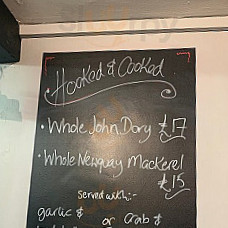 Hooked & Cooked
• Whole John Dory £17
• Whole Newquay Mackerel
£15
Served with:-
garlic & or Crab &